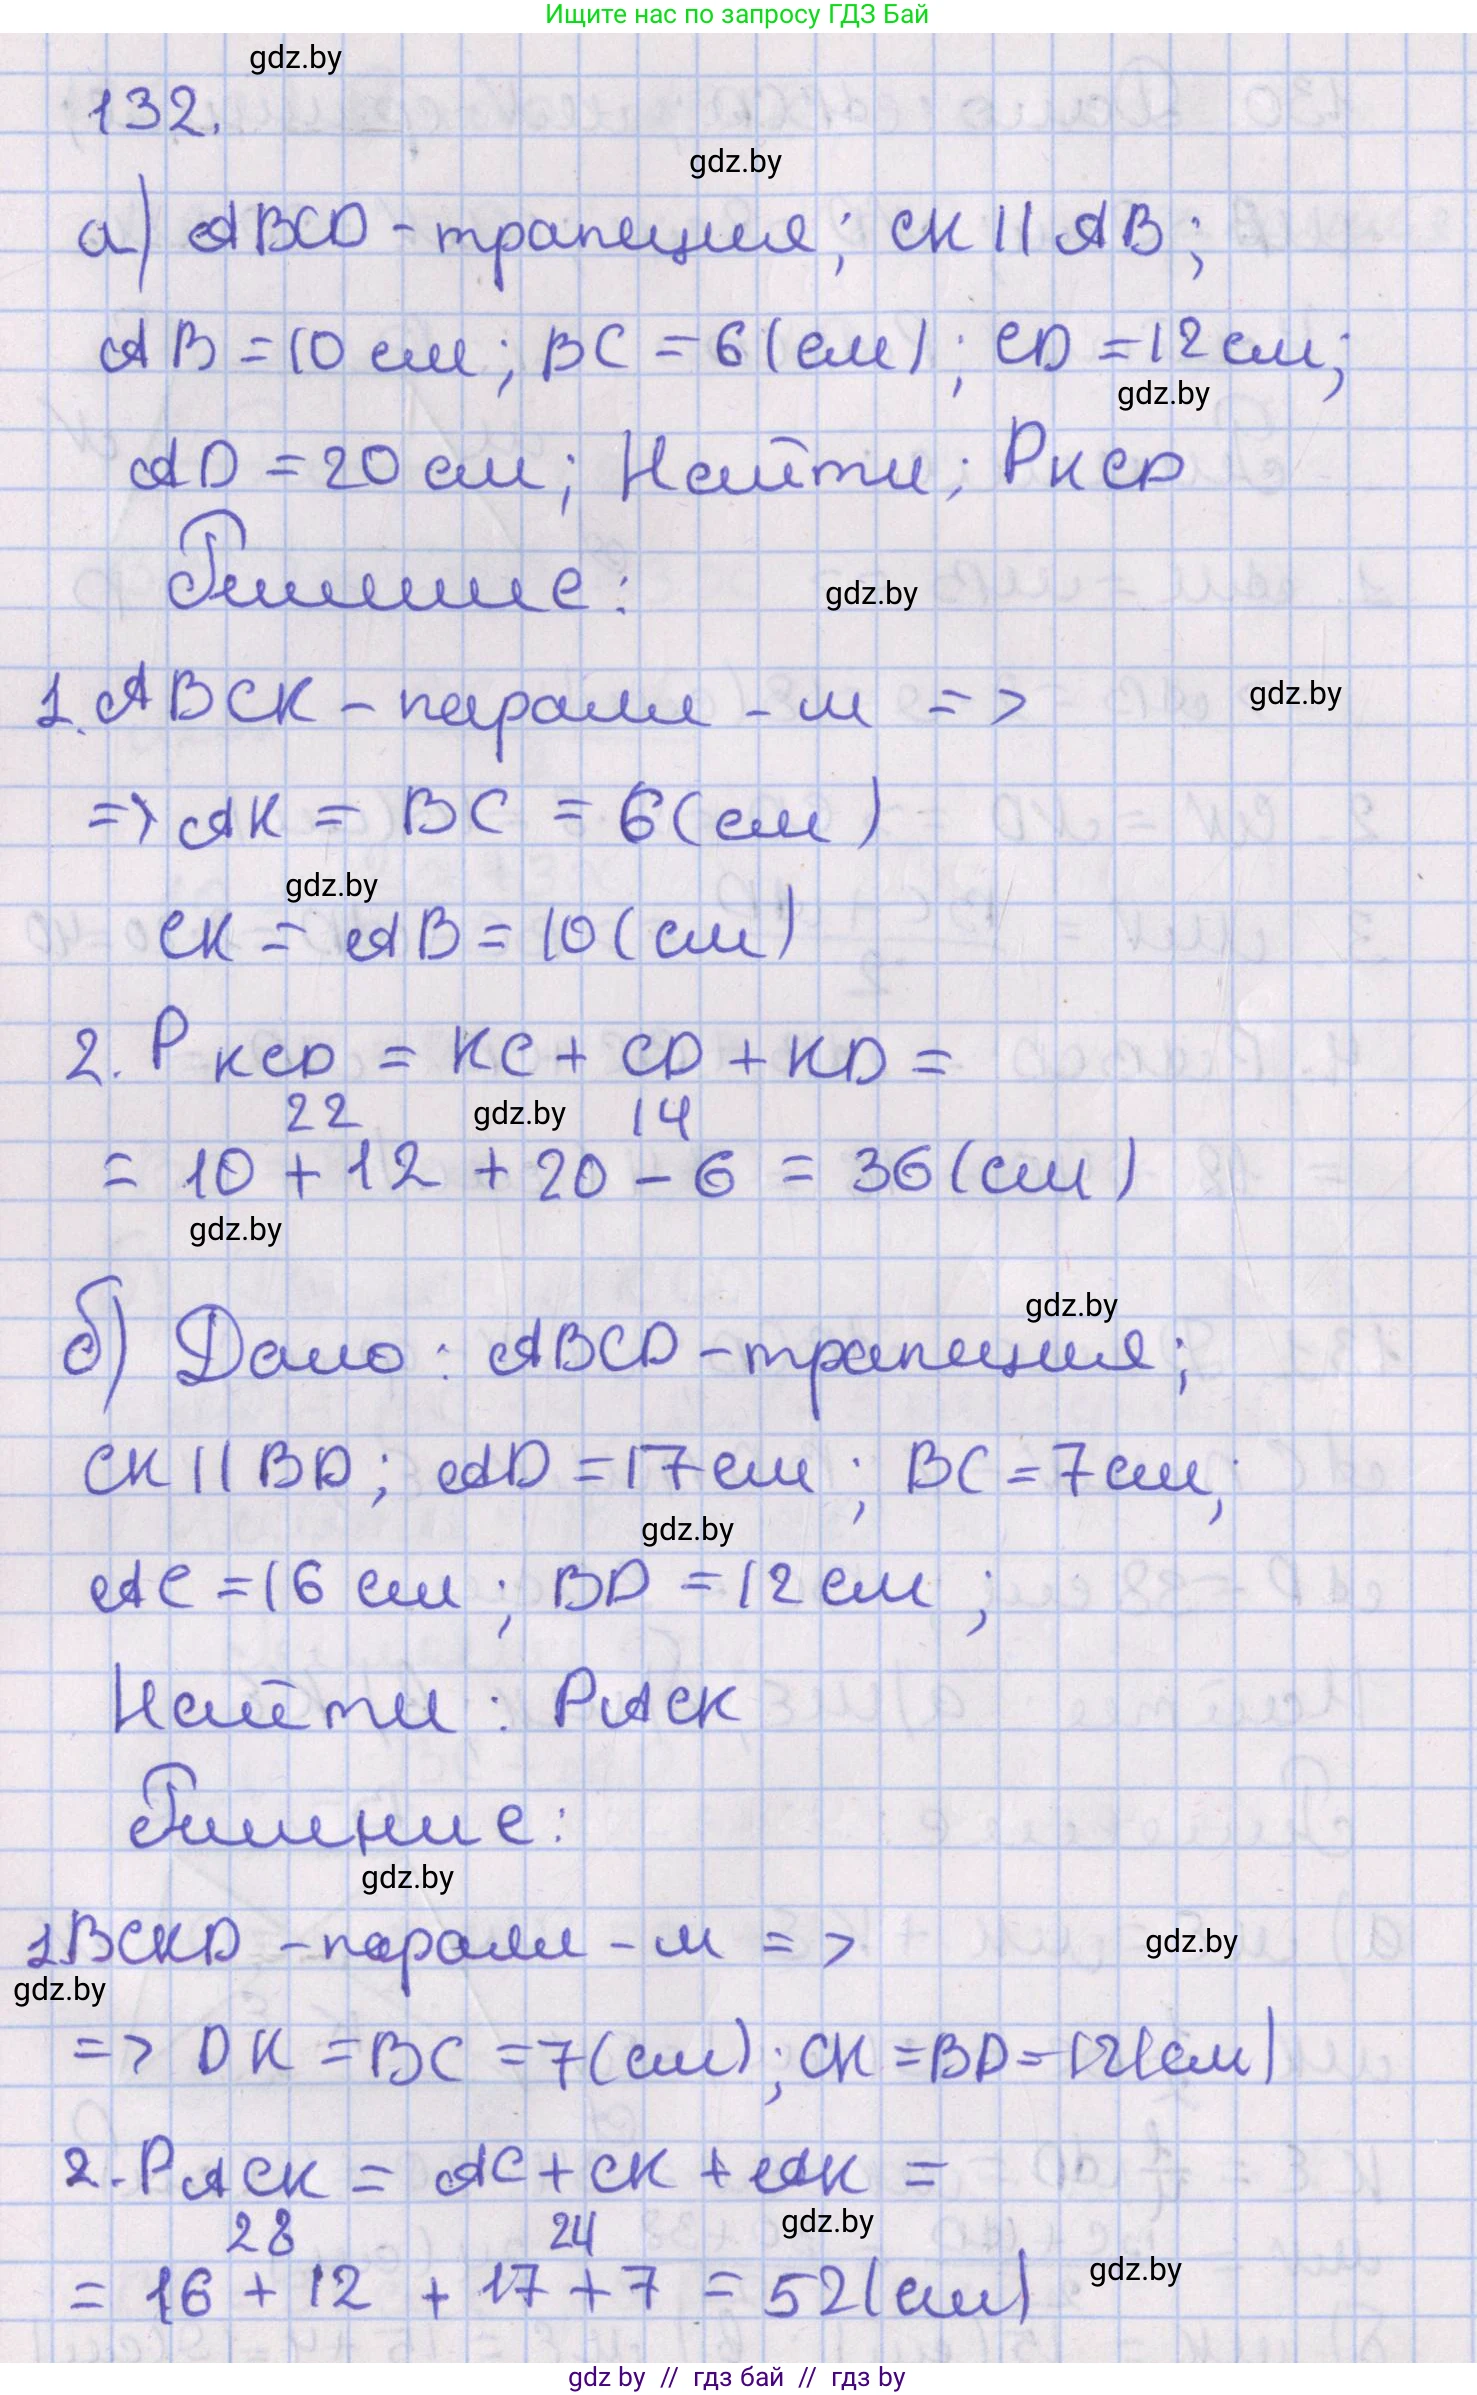 Ищите нас по запросу ГДЗ Бай
gdz.by
132.
gdz.by
а) ABCD - трапеция; CK || AB;
AB = 10 см; BC = 6 (см); CD = 12 см;
gdz.by
AD = 20 см; Найти; PKCD
Решение:
gdz.by
1. ABCK - паралл - м =>
gdz.by
=> AK = BC = 6 (см)
gdz.by
CK = AB = 10 (см)
2. P KCD = KC + CD + KD =
22 gdz.by 14
= 10 + 12 + 20 - 6 = 36 (см)
gdz.by
gdz.by
б) Дано: ABCD - трапеция;
CK || BD; AD = 17 см; BC = 7 см;
gdz.by
AC = 16 см; BD = 12 см;
Найти: PACK
Решние:
gdz.by
1 BCKD - паралл - м =>
gdz.by
gdz.by
=> DK = BC = 7 (см); CK = BD = 12 (см)
2. PACK = AC + CK + AK =
28 24 gdz.by
gdz.by
= 16 + 12 + 17 + 7 = 52 (см)
gdz by // гдз бай // гдз by